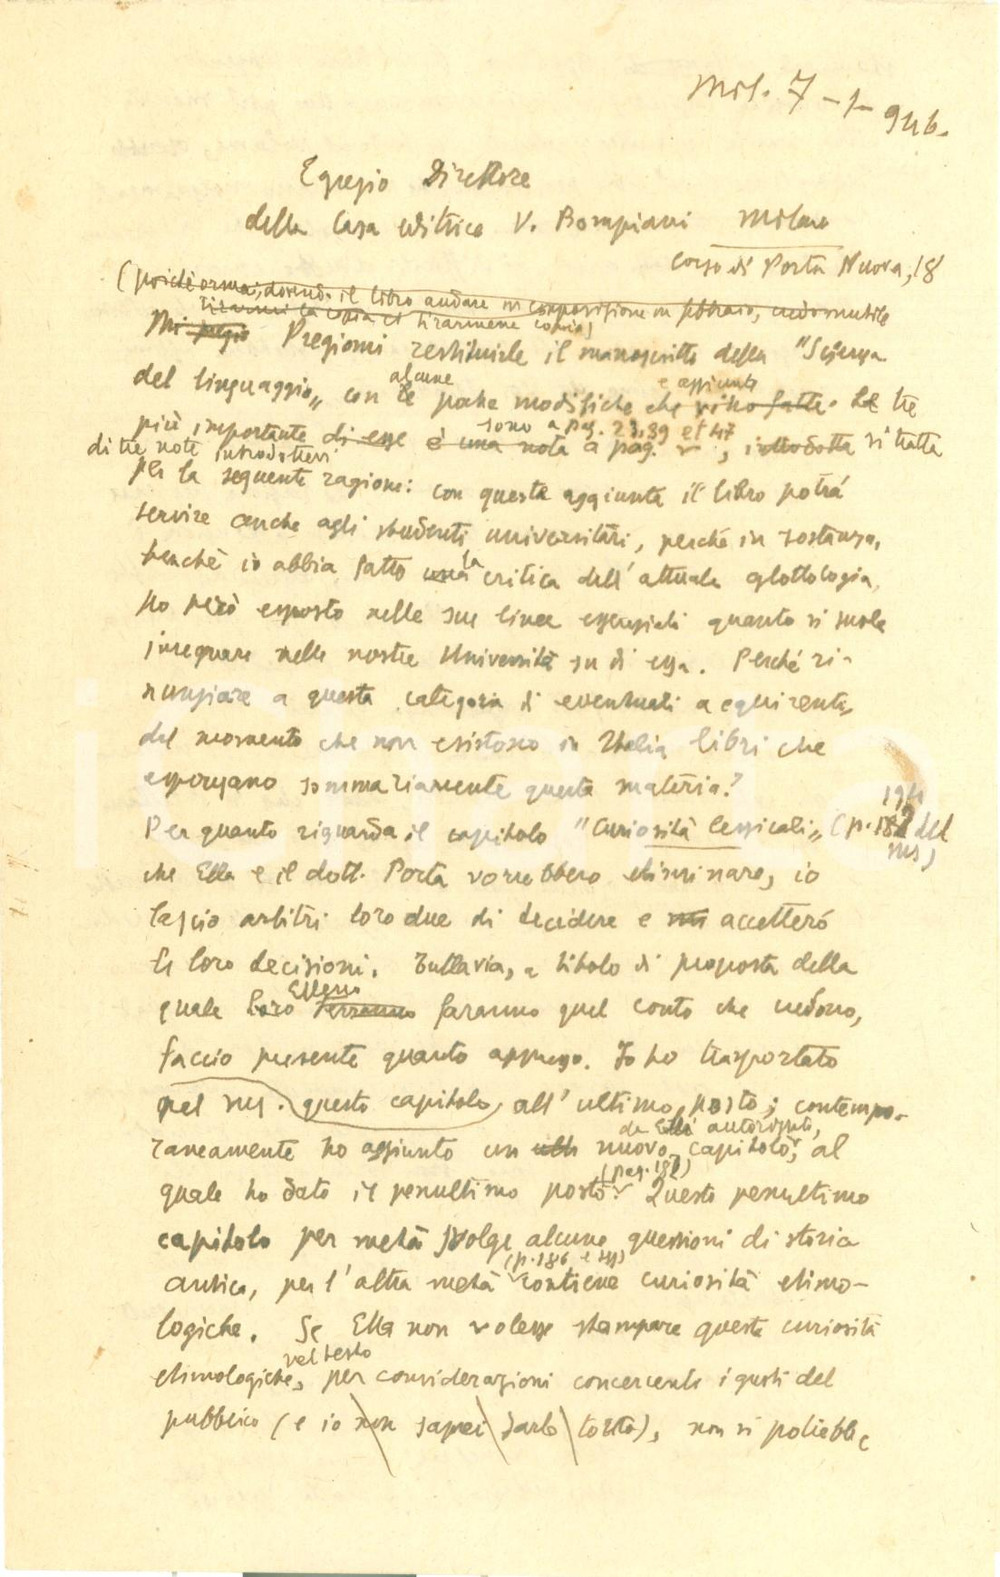 Mil. 7-1-946.
Egregio Direttore
della Casa editrice V. Bompiani Milano
corso di Porta Nuova, 18
(poiché ormai, dovendo il libro andare in composizione in febbraio,
tirarmene copia)
Mi pregio Pregiomi restituirle il manoscritto della "Scienza
alcune e aggiunte
del linguaggio„ con le poche modifiche che vi ho fatte. Le tre
sono a pag. 23, 39 e 47
più importante di esse è una nota a pag. , introdotta si tratta
di tre note introdottevi
per la seguente ragione: con questa aggiunta il libro potrà
servire anche agli studenti universitari, perché in sostanza,
la
benché io abbia fatto una critica dell'attuale glottologia,
ho però esposto nelle sue linee essenziali quanto si suole
insegnare nelle nostre Università su di essa. Perché ri-
nunziare a questa categoria di eventuali acquirenti,
dal momento che non esistono in Italia libri che
espongano sommariamente questa materia?
Per quanto riguarda il capitolo "Curiosità lessicali„ (p. 191 del
ms)
che Ella e il dott. Porta vorrebbero eliminare, io
lascio arbitri loro due di decidere e accetterò
le loro decisioni. Tuttavia, a titolo di proposta della
Elleno
quale Loro faranno quel conto che credono,
faccio presente quanto appresso. Io ho trasportato
nel ms. questo capitolo all'ultimo posto; contempo-
da Ella autorizzato,
raneamente ho aggiunto un nuovo capitolo, al
(pag. 181)
quale ho dato il penultimo posto. Questo penultimo
capitolo per metà svolge alcune questioni di storia
(p. 186 e sgg)
antica, per l'altra metà contiene curiosità etimo-
logiche. Se Ella non volesse stampare queste curiosità
nel testo
etimologiche, per considerazioni concernenti i gusti del
pubblico (e io non saprei darle torto), non si potrebbe